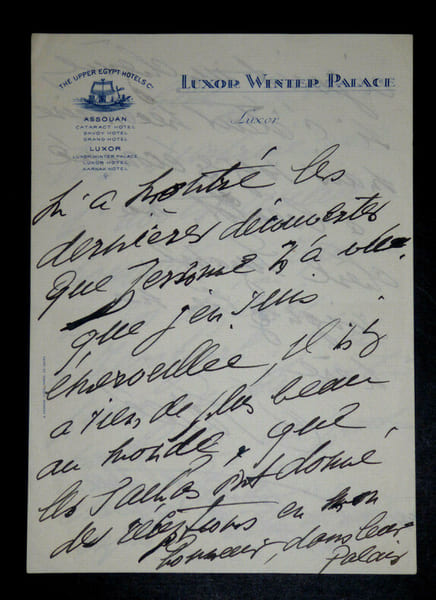 THE UPPER EGYPT HOTELS Co
ASSOUAN
CATARACT HOTEL
SAVOY HOTEL
GRAND HOTEL
LUXOR
LUXOR WINTER PALACE
LUXOR HOTEL
KARNAK HOTEL
LUXOR WINTER PALACE
Luxor
m'a montré les
dernières découvertes
que personne n'a vue.
que j'en suis
émerveillée, il n'y
a rien de plus beau
au monde, que
les Pachas ont donné
des réceptions en mon
honneur, dans leur
Palais